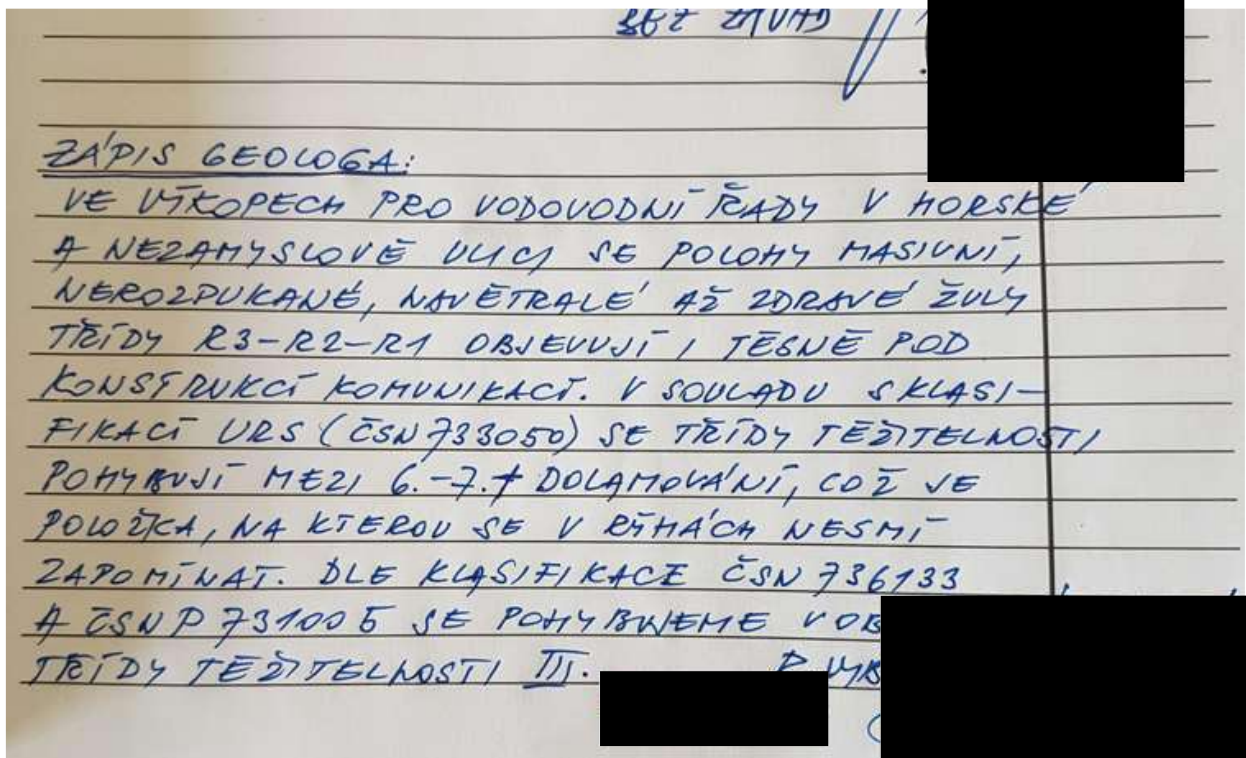 BEZ ZÁVAD
ZÁPIS GEOLOGA:
VE VÝKOPECH PRO VODOVODNÍ ŘADY V HORSKÉ
A NEZAMYSLOVĚ ULICI SE POLOHY MASIVNÍ,
NEROZPUKANÉ, NAVĚTRALÉ AŽ ZDRAVÉ ŽULY
TŘÍDY R3-R2-R1 OBJEVUJÍ I TĚSNĚ POD
KONSTRUKCÍ KOMUNIKACÍ. V SOULADU S KLASI-
FIKACÍ URS (ČSN 733050) SE TŘÍDY TĚŽITELNOSTI
POHYBUJÍ MEZI 6.-7.+ DOLAMOVÁNÍ, COŽ JE
POLOŽKA, NA KTEROU SE V RÝHÁCH NESMÍ
ZAPOMÍNAT. DLE KLASIFIKACE ČSN 736133
A ČSN P 731005 SE POHYBUJEME V OB
TŘÍDY TĚŽITELNOSTI III.